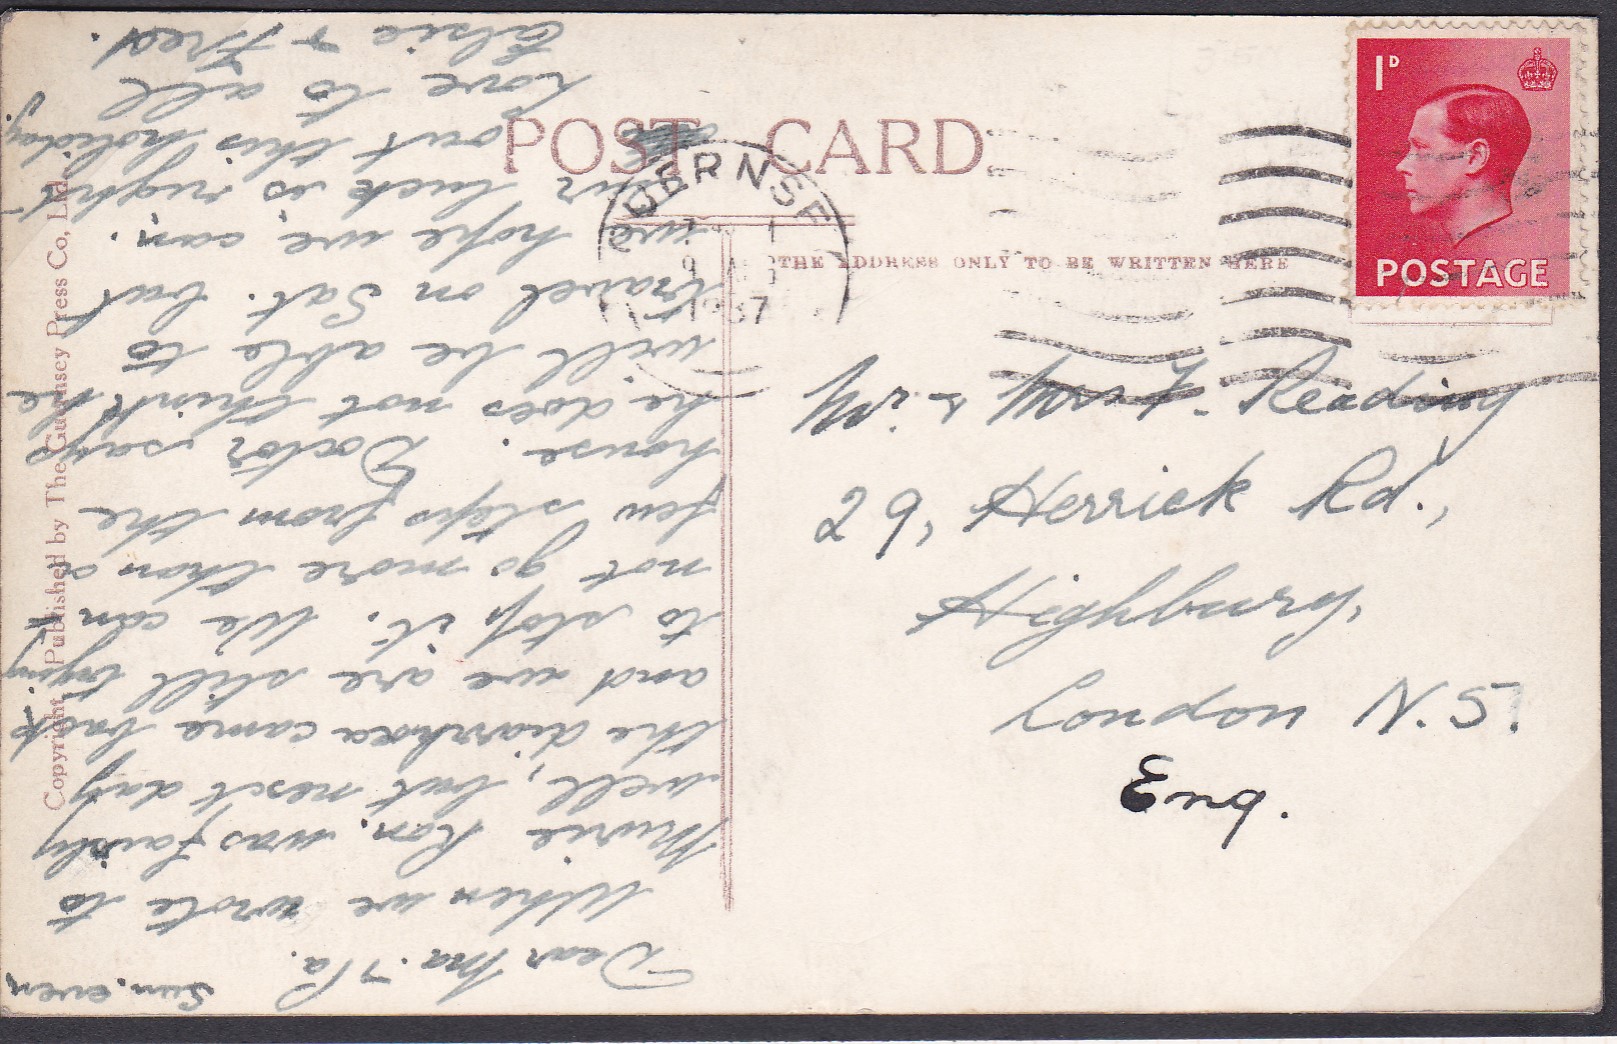 POST CARD
THE ADDRESS ONLY TO BE WRITTEN HERE
1D
POSTAGE
GUERNSE
9 AUG
1937
Mr. & Mrs F. Reading
29, Herrick Rd.,
Highbury,
London N.5.
Eng.
Copyright Published by The Guernsey Press Co, Ltd.
Sun. even
Dear Ma. & Pa.
When we wrote to
Murie Ron. was fairly
well, but next day
the diarrhoea came back
and we are still trying
to stop it. We can
not go more than a
few steps from the
house. Doctor says
he does not think he
will be able to
travel on Sat. but
we hope we can.
Our luck is right
out this holiday.
Love to all
Elsie & Fred.